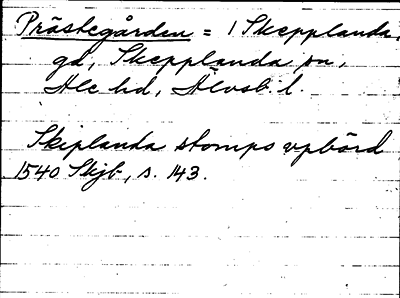 Prästegården = 1 Skepplanda,
gd, Skepplanda sn,
Ale hd, Älvsb. l.
Skiplanda stomps vpbörd
1540 Skjb, s. 143.